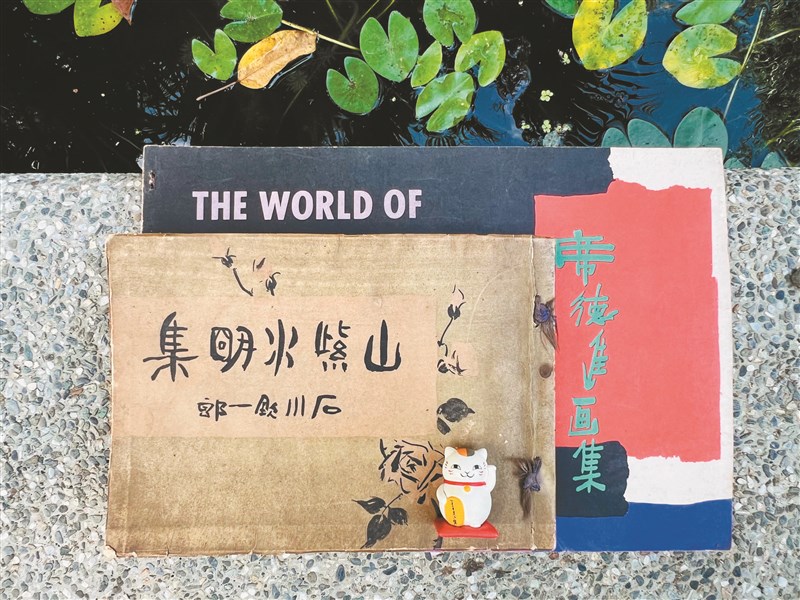 THE WORLD OF
席德進画集
山紫水明集
石川欽一郎